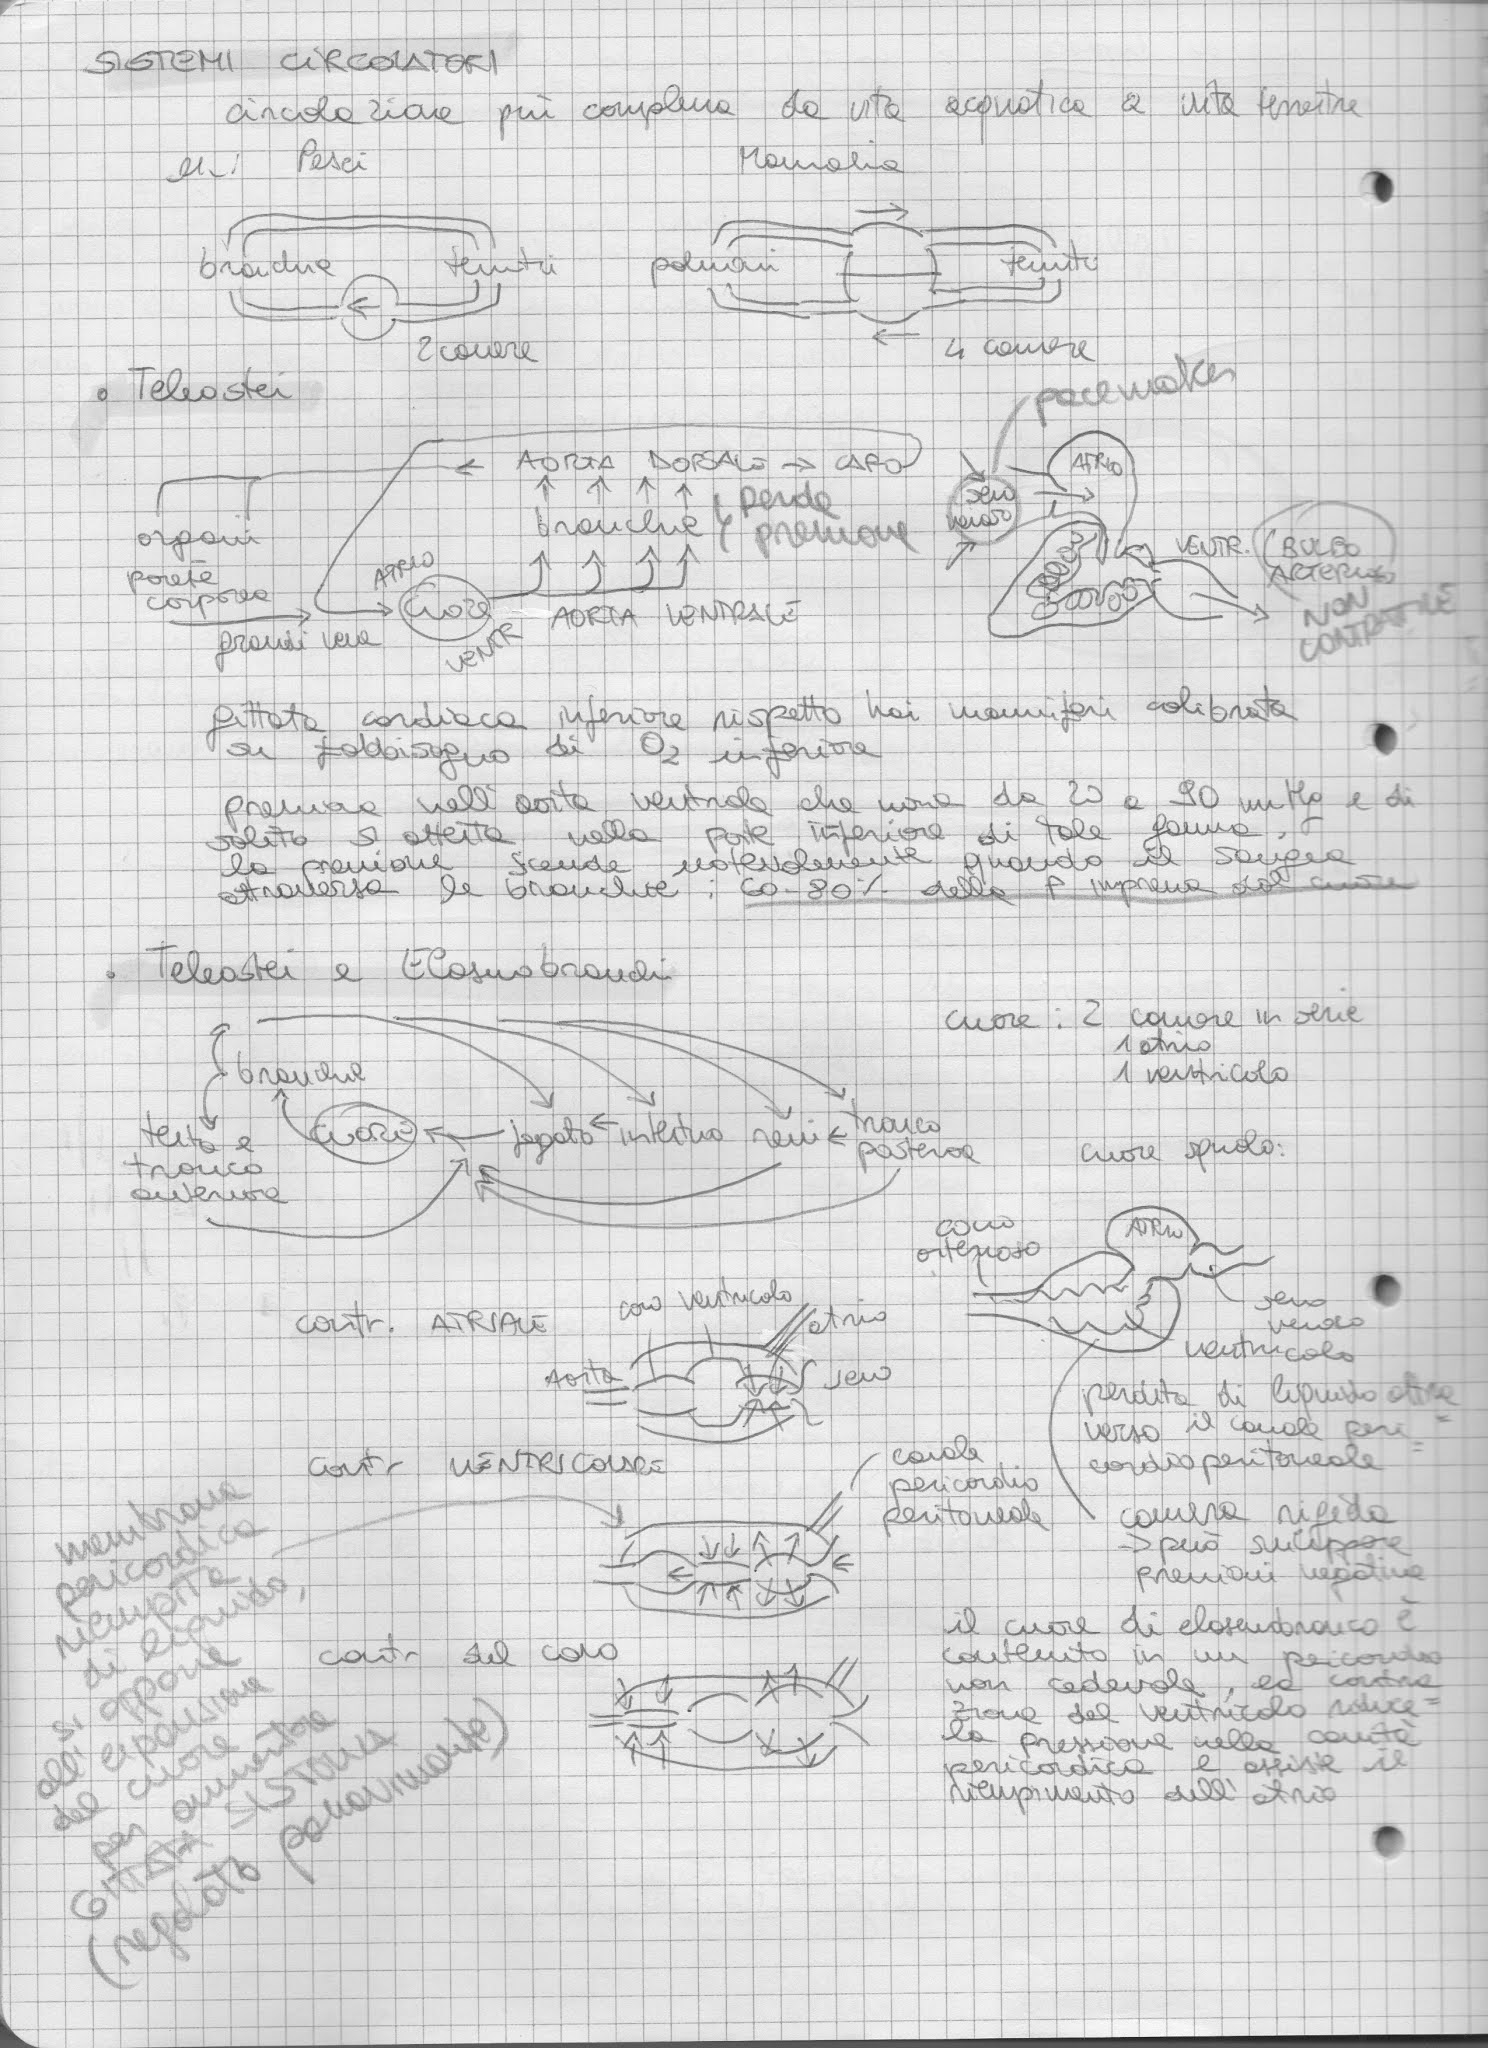 SISTEMI CIRCOLATORI
circolazione più complessa da vita acquatica a vita terrestre
es.: Pesci Mammalia
branchie tessuti polmoni tessuti
2 camere 4 camere
• Teleostei
pacemaker
← AORTA DORSALE → CAPO
branchie perde
pressione
organi
parete
corporea
grandi vene
ATRIO
cuore
VENTR
AORTA VENTRALE
seno
venoso
ATRIO
VENTR.
BULBO
ARTERIOSO
NON
CONTRATTILE
gittata cardiaca inferiore rispetto hai mammiferi calibrata
su fabbisogno di O2 inferiore
pressione nell'aorta ventrale che varia da 20 a 90 mmHg e di
solito si attesta nella parte inferiore di tale gamma,
la pressione scende notevolmente quando il sangue
attraversa le branchie: 60-80% della P impressa dal cuore
• Teleostei e Elasmobranchi
cuore: 2 camere in serie
1 atrio
1 ventricolo
branchie
testa e
tronco
anteriore
cuore ← fegato ← intestino reni ← tronco
posteriore
cuore squalo:
cono
arterioso
ATRIO
seno
venoso
ventricolo
contr. ATRIALE
cono ventricolo
atrio
Aorta
seno
perdita di liquido attra
verso il canale peri=
cardioperitoneale
contr VENTRICOLARE
canale
pericardio
peritoneale
camera rigida
→ può sviluppare
pressioni negative
membrana
pericardica
riempita
di liquido,
si oppone
all'espansione
del cuore
per aumentare
GITTATA SISTOLICA
(regolato passivamente)
contr del cono
il cuore di elasmobranco è
contenuto in un pericardio
non cedevole, la contra
zione del ventricolo riduce=
la pressione nella cavità
pericardica e assiste il
riempimento dell'atrio